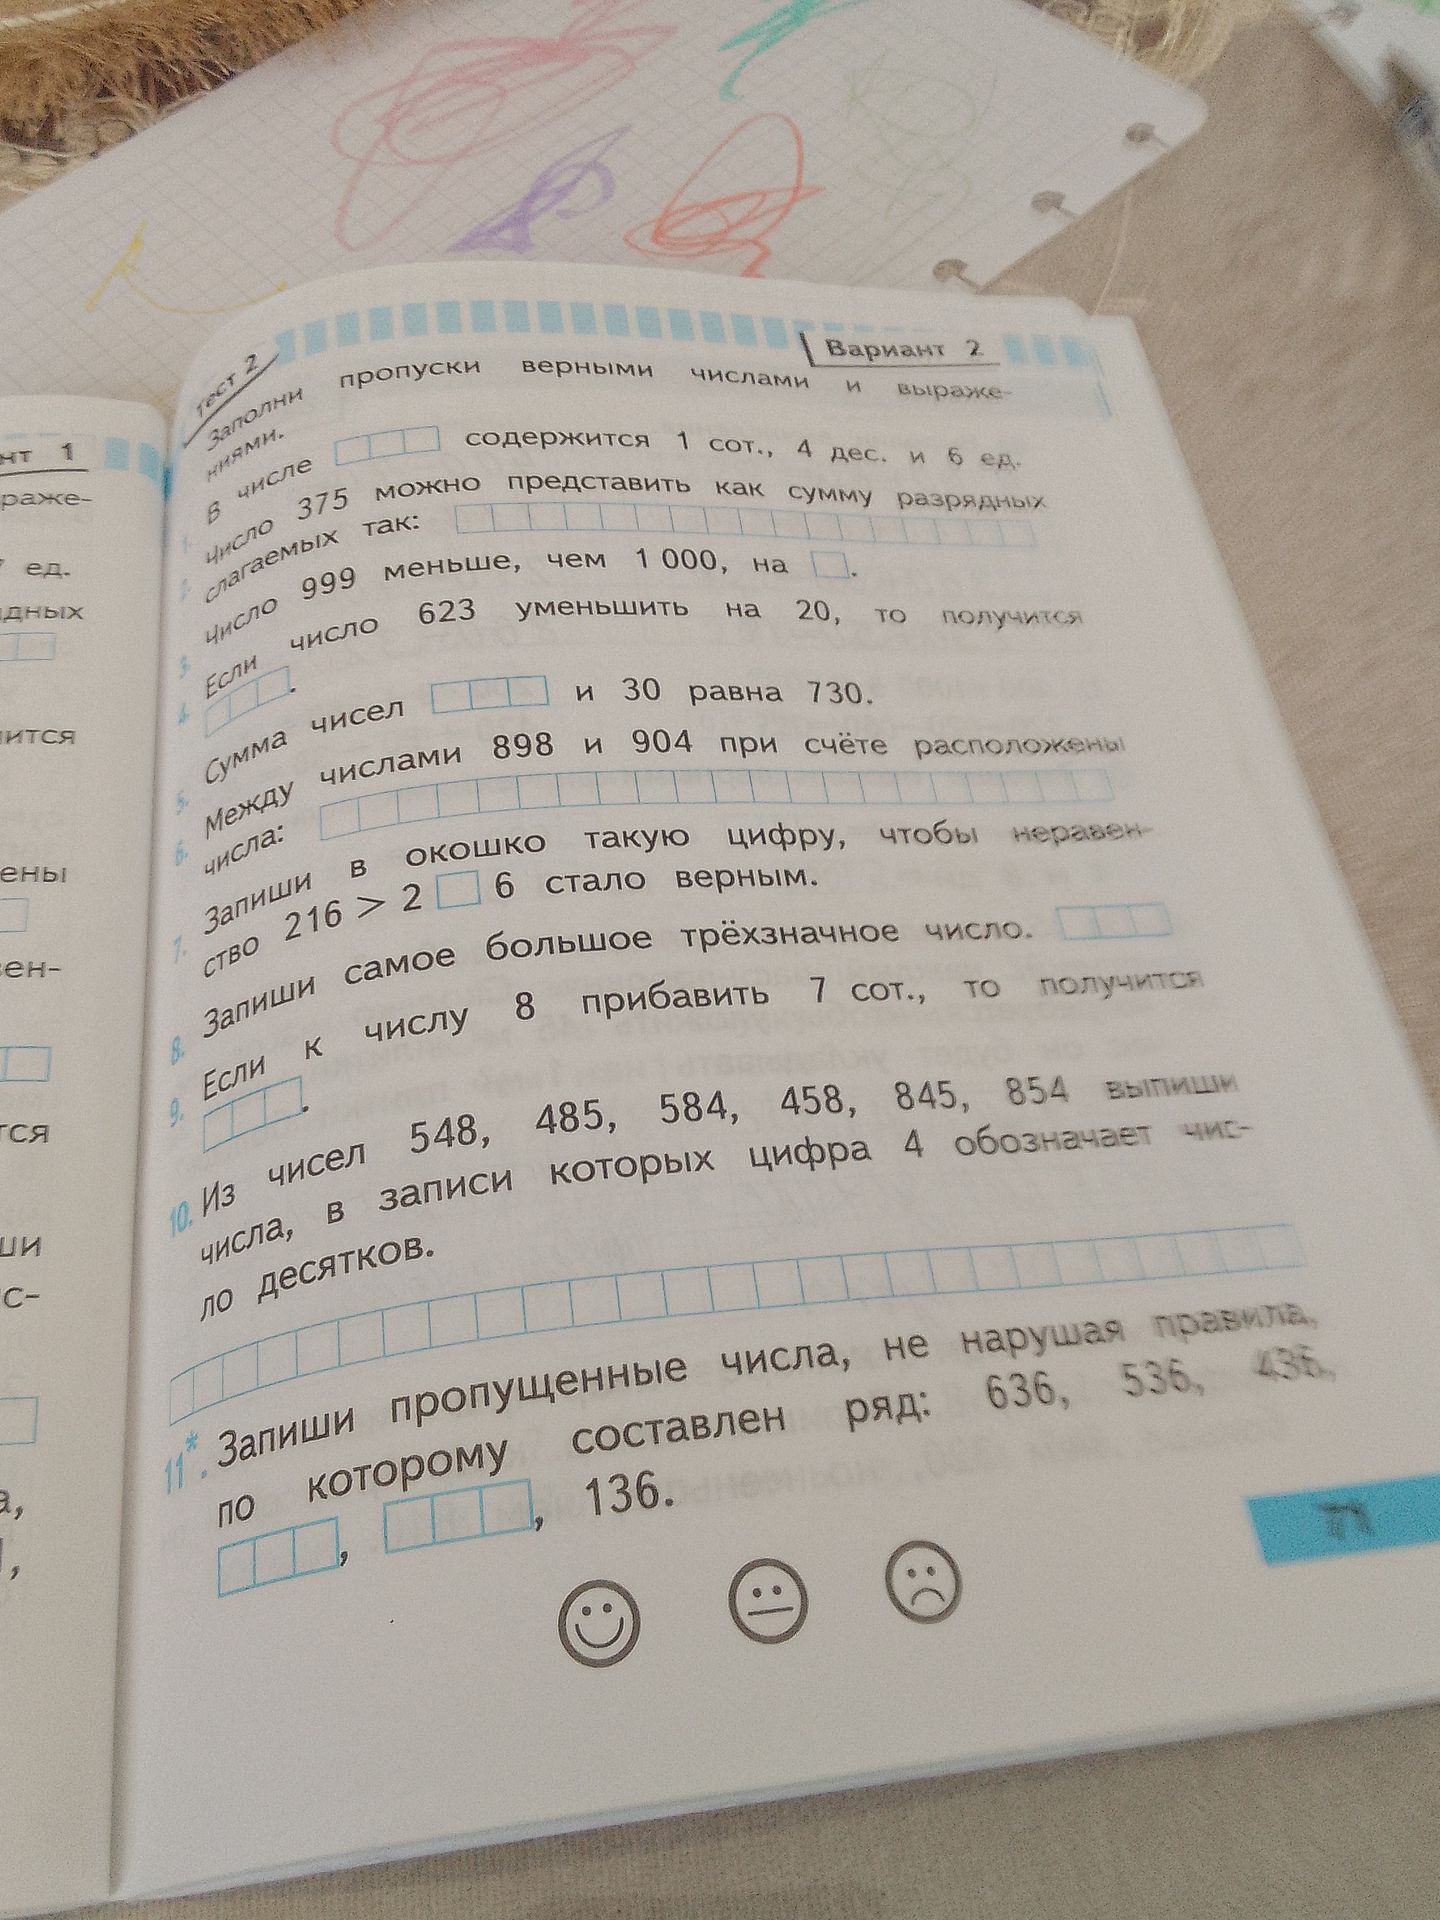 Тест 2
Вариант 2
Заполни пропуски верными числами и выраже-
ниями.
1. В числе содержится 1 сот., 4 дес. и 6 ед.
2. Число 375 можно представить как сумму разрядных
слагаемых так:
3. Число 999 меньше, чем 1 000, на .
4. Если число 623 уменьшить на 20, то получится
.
5. Сумма чисел и 30 равна 730.
6. Между числами 898 и 904 при счёте расположены
числа:
7. Запиши в окошко такую цифру, чтобы неравен-
ство 216 > 2 6 стало верным.
8. Запиши самое большое трёхзначное число.
9. Если к числу 8 прибавить 7 сот., то получится
.
10. Из чисел 548, 485, 584, 458, 845, 854 выпиши
числа, в записи которых цифра 4 обозначает чис-
ло десятков.
11*. Запиши пропущенные числа, не нарушая правила,
по которому составлен ряд: 636, 536, 436,
, , 136.
71
нт 1
раже-
ед.
дных
ится
ены
вен-
тся
ши
с-
а,